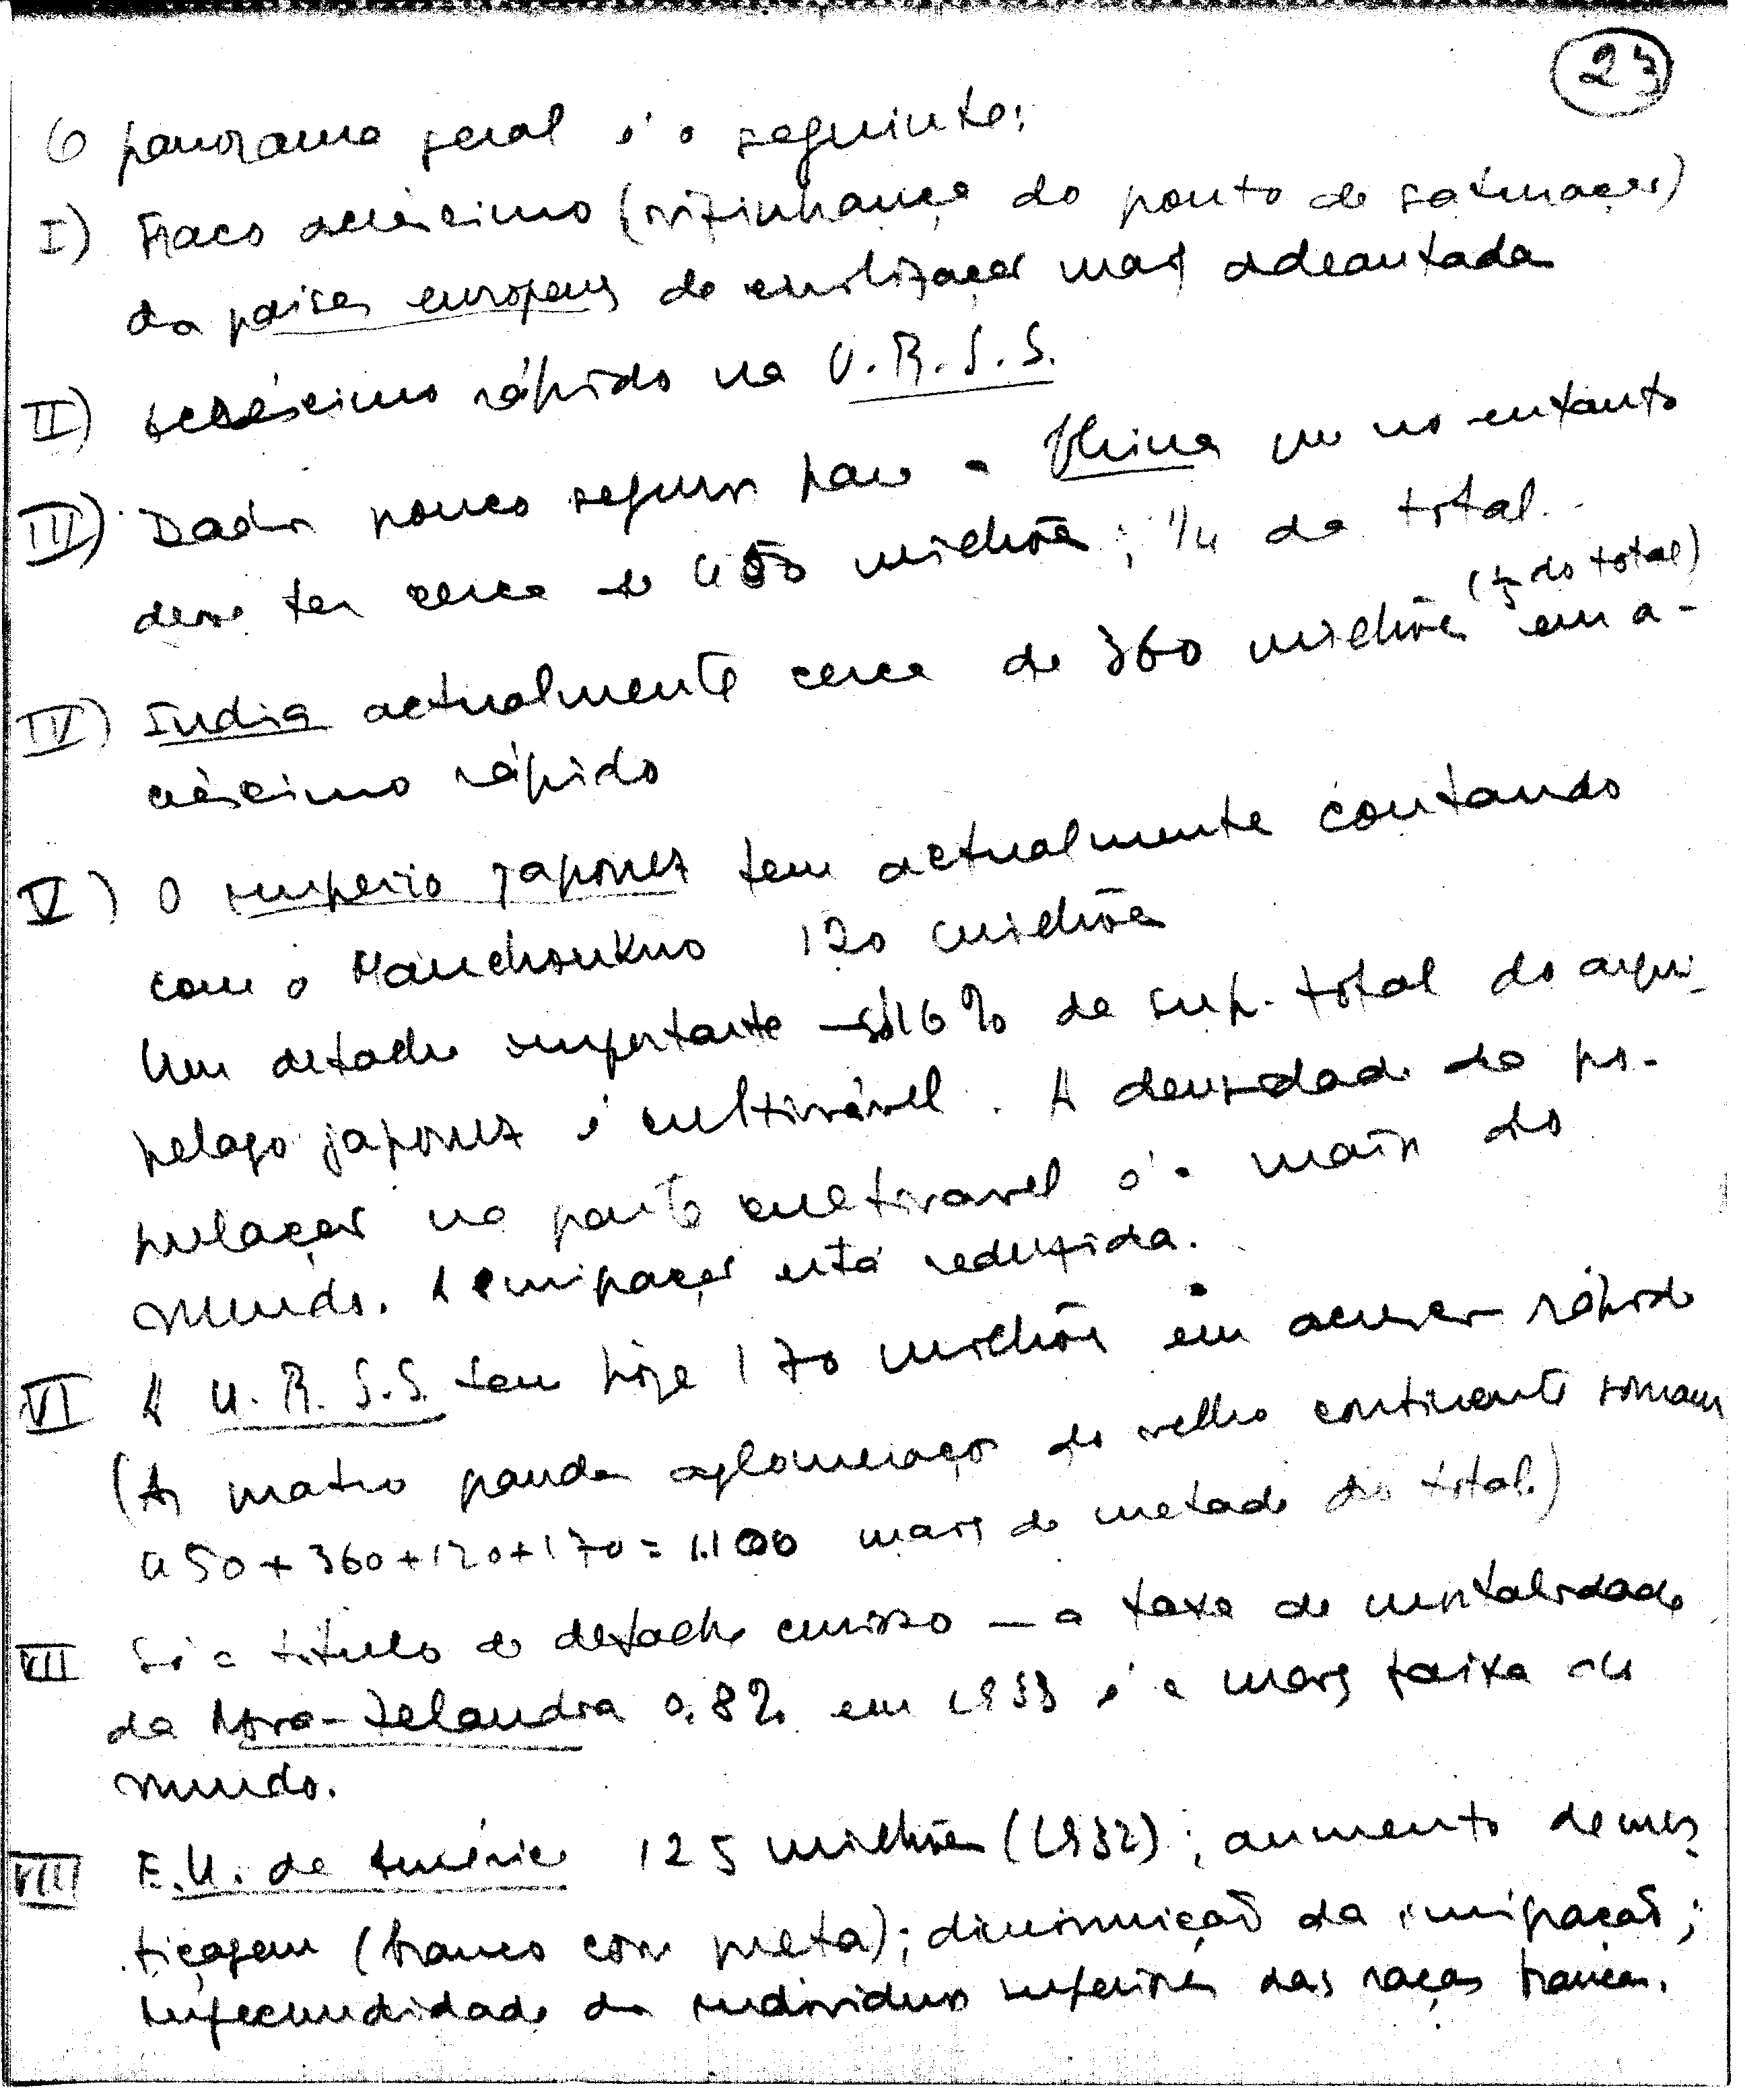 23
O panorama geral é o seguinte:
I) Fraco acréscimo (vizinhança do ponto de saturação)
dos paises europeus de civilização mais adeantada
II) acréscimo rápido na U.R.S.S.
III) Dados pouco seguros para a China que no entanto
deve ter cerca de 450 milhões; 1/4 do total.
(1/5 do total)
IV) India actualmente cerca de 360 milhões em a-
créscimo rápido
V) O imperio japonez tem actualmente contando
com o Manchoukuo 120 milhões
Um detalhe importante – só 16% da sup. total do arqui-
pelago japonez é cultivável. A densidade da po-
pulação na parte cultivavel é a maior do
mundo. A emigração está reduzida.
VI A U.R.S.S. tem hoje 170 milhões em acrescer rápido
(As quatro grandes aglomerações do velho continente somam
450+360+120+170=1.100 mais de metade do total.)
VII Só a titulo de detalhe curioso – a taxa de mortalidade
da Nova-Zelandia 0,8% em 1933 é a mais baixa do
mundo.
VIII E.U. da América 125 milhões (1932); aumento de mes-
tiçagem (branco com preta); diminuição da imigração;
infecundidade dos individuos superiores das raças brancas.